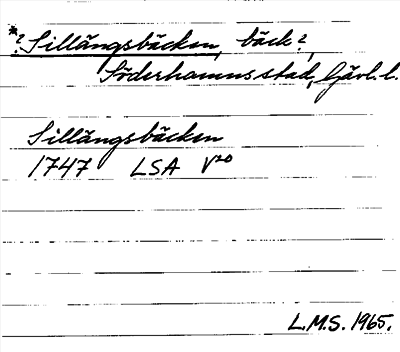 *?Sillångsbäcken, bäck?,
Söderhamns stad, Gävl. l.
Sillångsbäcken
1747 LSA V20
L.M.S. 1965.